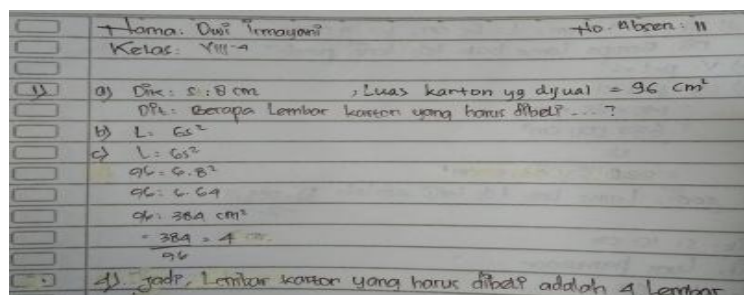 Nama: Dwi Irmayani No. Absen: 11
Kelas: VIII-4
1) a) Dik: s: 8 cm , Luas karton yg dijual = 96 cm²
Dit: Berapa Lembar karton yang harus dibeli ... ?
b) L: 6s²
c) L: 6s²
96: 6.8²
96: 6.64
96: 384 cm²
= 384 = 4
96
d) Jadi, Lembar karton yang harus dibeli adalah 4 Lembar